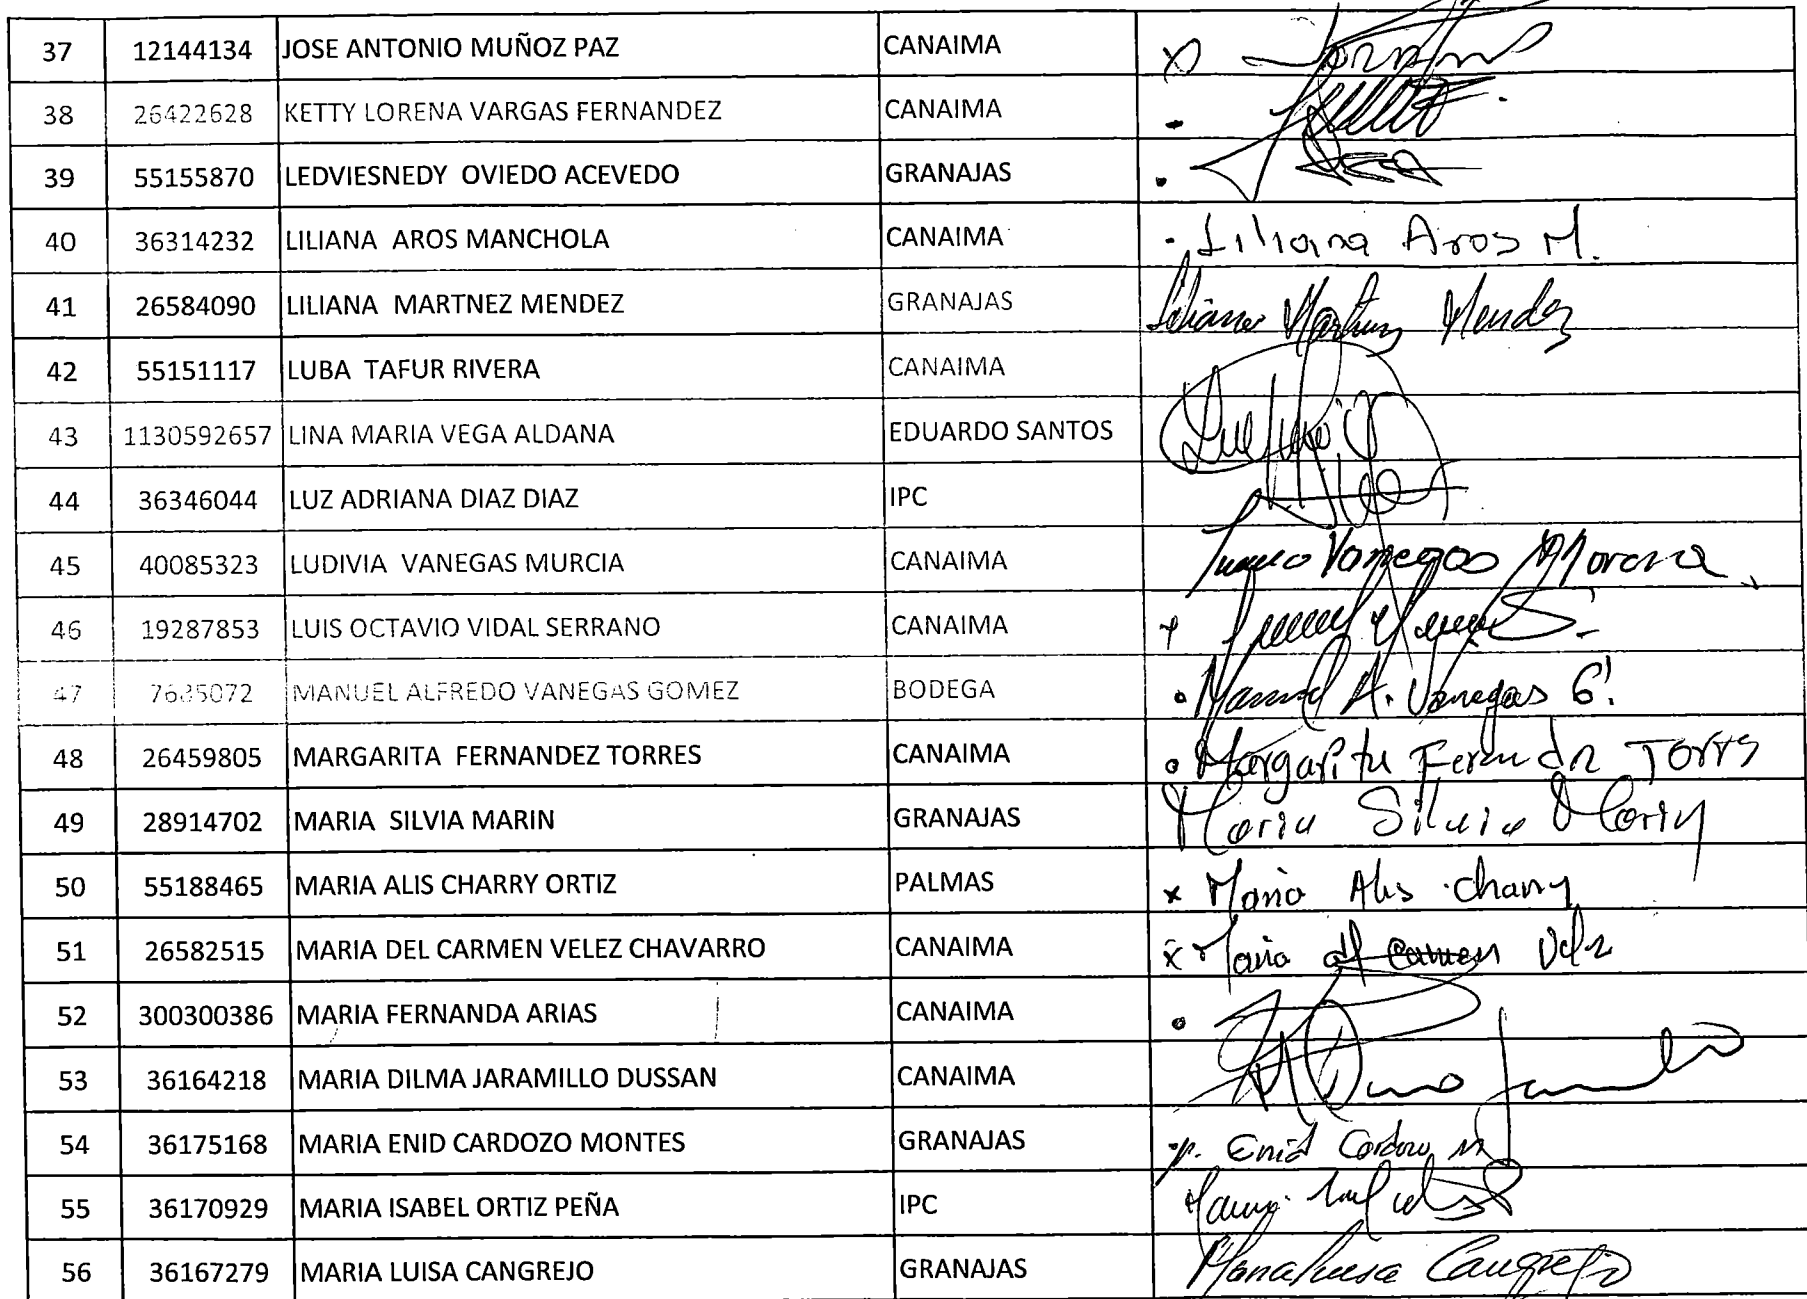 37 12144134 JOSE ANTONIO MUÑOZ PAZ CANAIMA
38 26422628 KETTY LORENA VARGAS FERNANDEZ CANAIMA
39 55155870 LEDVIESNEDY OVIEDO ACEVEDO GRANAJAS
40 36314232 LILIANA AROS MANCHOLA CANAIMA Liliana Aros M.
41 26584090 LILIANA MARTNEZ MENDEZ GRANAJAS Liliana Martinez Mendez
42 55151117 LUBA TAFUR RIVERA CANAIMA
43 1130592657 LINA MARIA VEGA ALDANA EDUARDO SANTOS
44 36346044 LUZ ADRIANA DIAZ DIAZ IPC
45 40085323 LUDIVIA VANEGAS MURCIA CANAIMA Vanegas
46 19287853 LUIS OCTAVIO VIDAL SERRANO CANAIMA
47 7685072 MANUEL ALFREDO VANEGAS GOMEZ BODEGA Manuel A. Vanegas G.
48 26459805 MARGARITA FERNANDEZ TORRES CANAIMA Margarita
49 28914702 MARIA SILVIA MARIN GRANAJAS Maria Silvia Marin
50 55188465 MARIA ALIS CHARRY ORTIZ PALMAS x Maria Alis Charry
51 26582515 MARIA DEL CARMEN VELEZ CHAVARRO CANAIMA x Maria del Carmen
52 300300386 MARIA FERNANDA ARIAS CANAIMA
53 36164218 MARIA DILMA JARAMILLO DUSSAN CANAIMA
54 36175168 MARIA ENID CARDOZO MONTES GRANAJAS Enid Cardozo M
55 36170929 MARIA ISABEL ORTIZ PEÑA IPC
56 36167279 MARIA LUISA CANGREJO GRANAJAS Maria Luisa Cangrejo